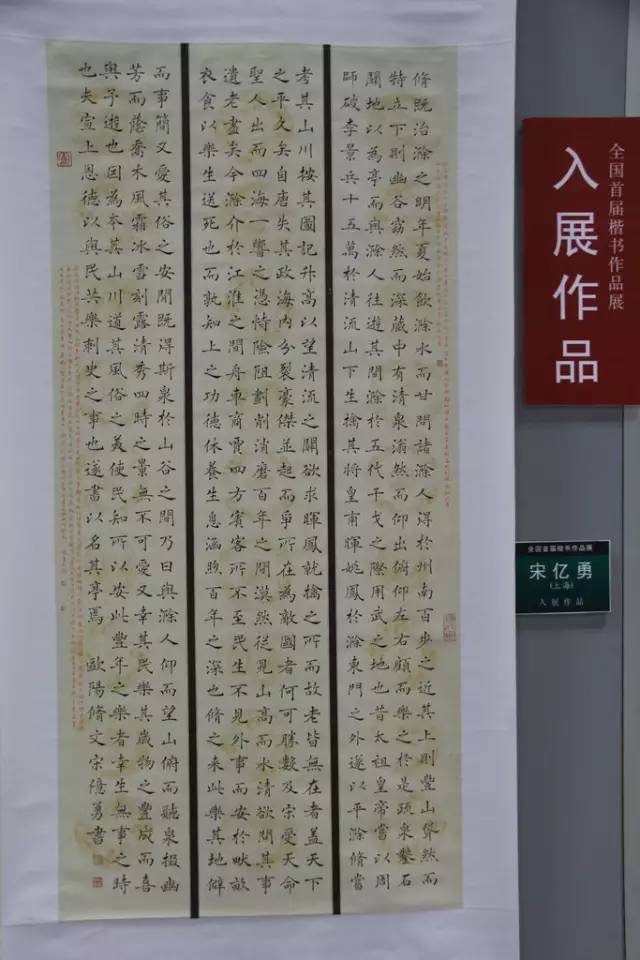 脩既治滁之明年夏始飲滁水而甘問諸滁人得於州南百步之近其上則豐山聳然而
特立下則幽谷窈然而深藏中有清泉滃然而仰出俯仰左右顧而樂之於是疏泉鑿石
闢地以為亭而與滁人往遊其間於五代干戈之際用武之地也昔太祖皇帝嘗以周
師破李景兵十五萬於清流山下生擒其將皇甫暉姚鳳於滁東門之外遂以平滁脩嘗
考其山川按其圖記升高以望清流之關欲求暉鳳就擒之所而故老皆無在者蓋天下
之平久矣自唐失其政海內分裂豪傑並起而爭所在為敵國者何可勝數及宋受天命
聖人出而四海一響之憑恃險阻剗削消磨百年之間漠然徒見山高而水清欲問其事
遺老盡矣今滁介於江淮之間舟車商賈四方賓客所不至民生不見外事而安於畎畝
衣食以樂生送死也而孰知上之功德休養生息涵煦百年之深也脩之来此樂其地僻
而事簡又愛其俗之安閒既得斯泉於山谷之間乃日與滁人仰而望山俯而聽泉掇幽
芳而蔭喬木風霜冰雪刻露清秀四時之景無不可愛又幸其民樂其歲物之豐成而喜
與予遊也因為本其山川道其風俗之美使民知所以安此豐年之樂者幸生無事之時
也夫宣上恩德以與民共樂刺史之事也遂書以名其亭焉 歐陽脩文宋億勇書
全国首届楷书作品展
入展作品
全国首届楷书作品展
宋亿勇
(上海)
入展作品